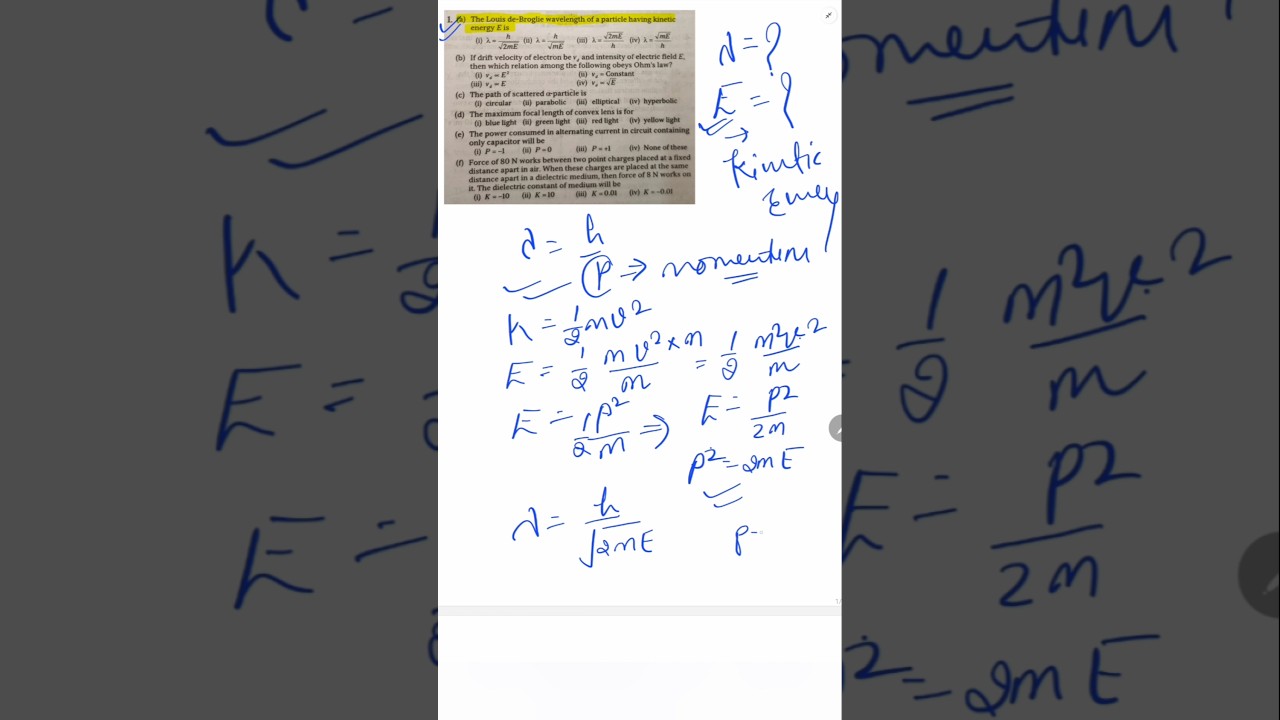 1. (a) The Louis de-Broglie wavelength of a particle having kinetic
energy E is
(i) λ = h/√2mE (ii) λ = h/√mE (iii) λ = √2mE/h (iv) λ = √mE/h
(b) If drift velocity of electron be v_d and intensity of electric field E,
then which relation among the following obeys Ohm's law?
(i) v_d = E² (ii) v_d = Constant
(iii) v_d = E (iv) v_d = √E
(c) The path of scattered α-particle is
(i) circular (ii) parabolic (iii) elliptical (iv) hyperbolic
(d) The maximum focal length of convex lens is for
(i) blue light (ii) green light (iii) red light (iv) yellow light
(e) The power consumed in alternating current in circuit containing
only capacitor will be
(i) P = -1 (ii) P = 0 (iii) P = +1 (iv) None of these
(f) Force of 80 N works between two point charges placed at a fixed
distance apart in air. When these charges are placed at the same
distance apart in a dielectric medium, then force of 8 N works on
it. The dielectric constant of medium will be
(i) K = -10 (ii) K = 10 (iii) K = 0.01 (iv) K = -0.01
λ = ?
E = ?
→
Kinetic
λ = h/P ⇒ momentum
K = 1/2 mv²
E = 1/2 mv² × m/m = 1/2 m²v²/m
E = 1/2 P²/m ⇒ E = P²/2m
P² = 2mE
λ = h/√2mE
P =